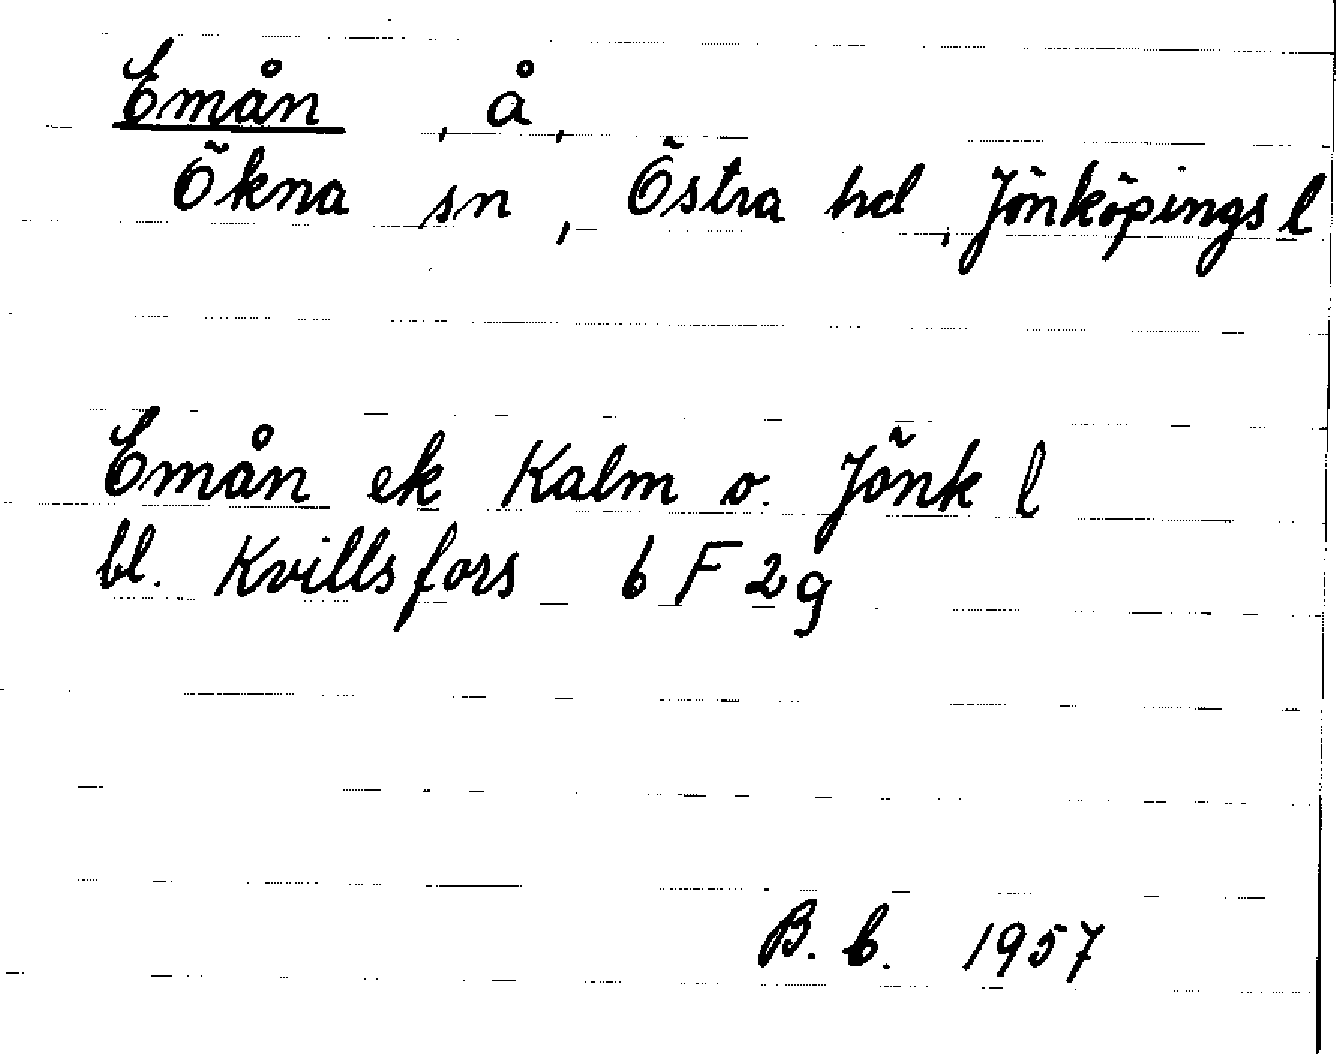 Emån, å,
Ökna sn, Östra hd, Jönköpings l
Emån ek Kalm o. Jönk l
bl. Kvillsfors 6 F 2g
B. b. 1957